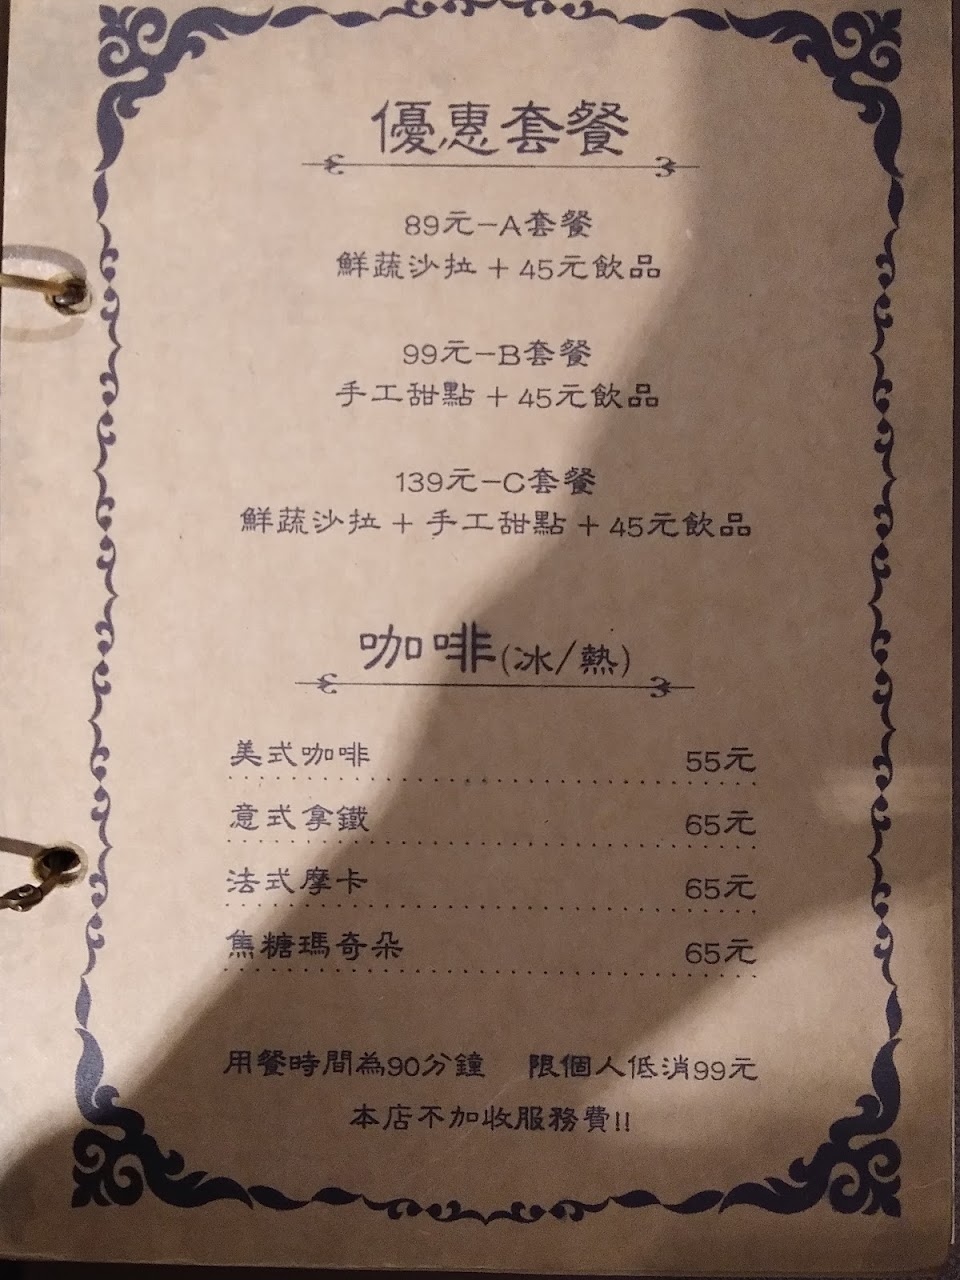 優惠套餐
89元-A套餐
鮮蔬沙拉 + 45元飲品
99元-B套餐
手工甜點 + 45元飲品
139元-C套餐
鮮蔬沙拉 + 手工甜點 + 45元飲品
咖啡(冰/熱)
美式咖啡 55元
意式拿鐵 65元
法式摩卡 65元
焦糖瑪奇朵 65元
用餐時間為90分鐘 限個人低消99元
本店不加收服務費!!